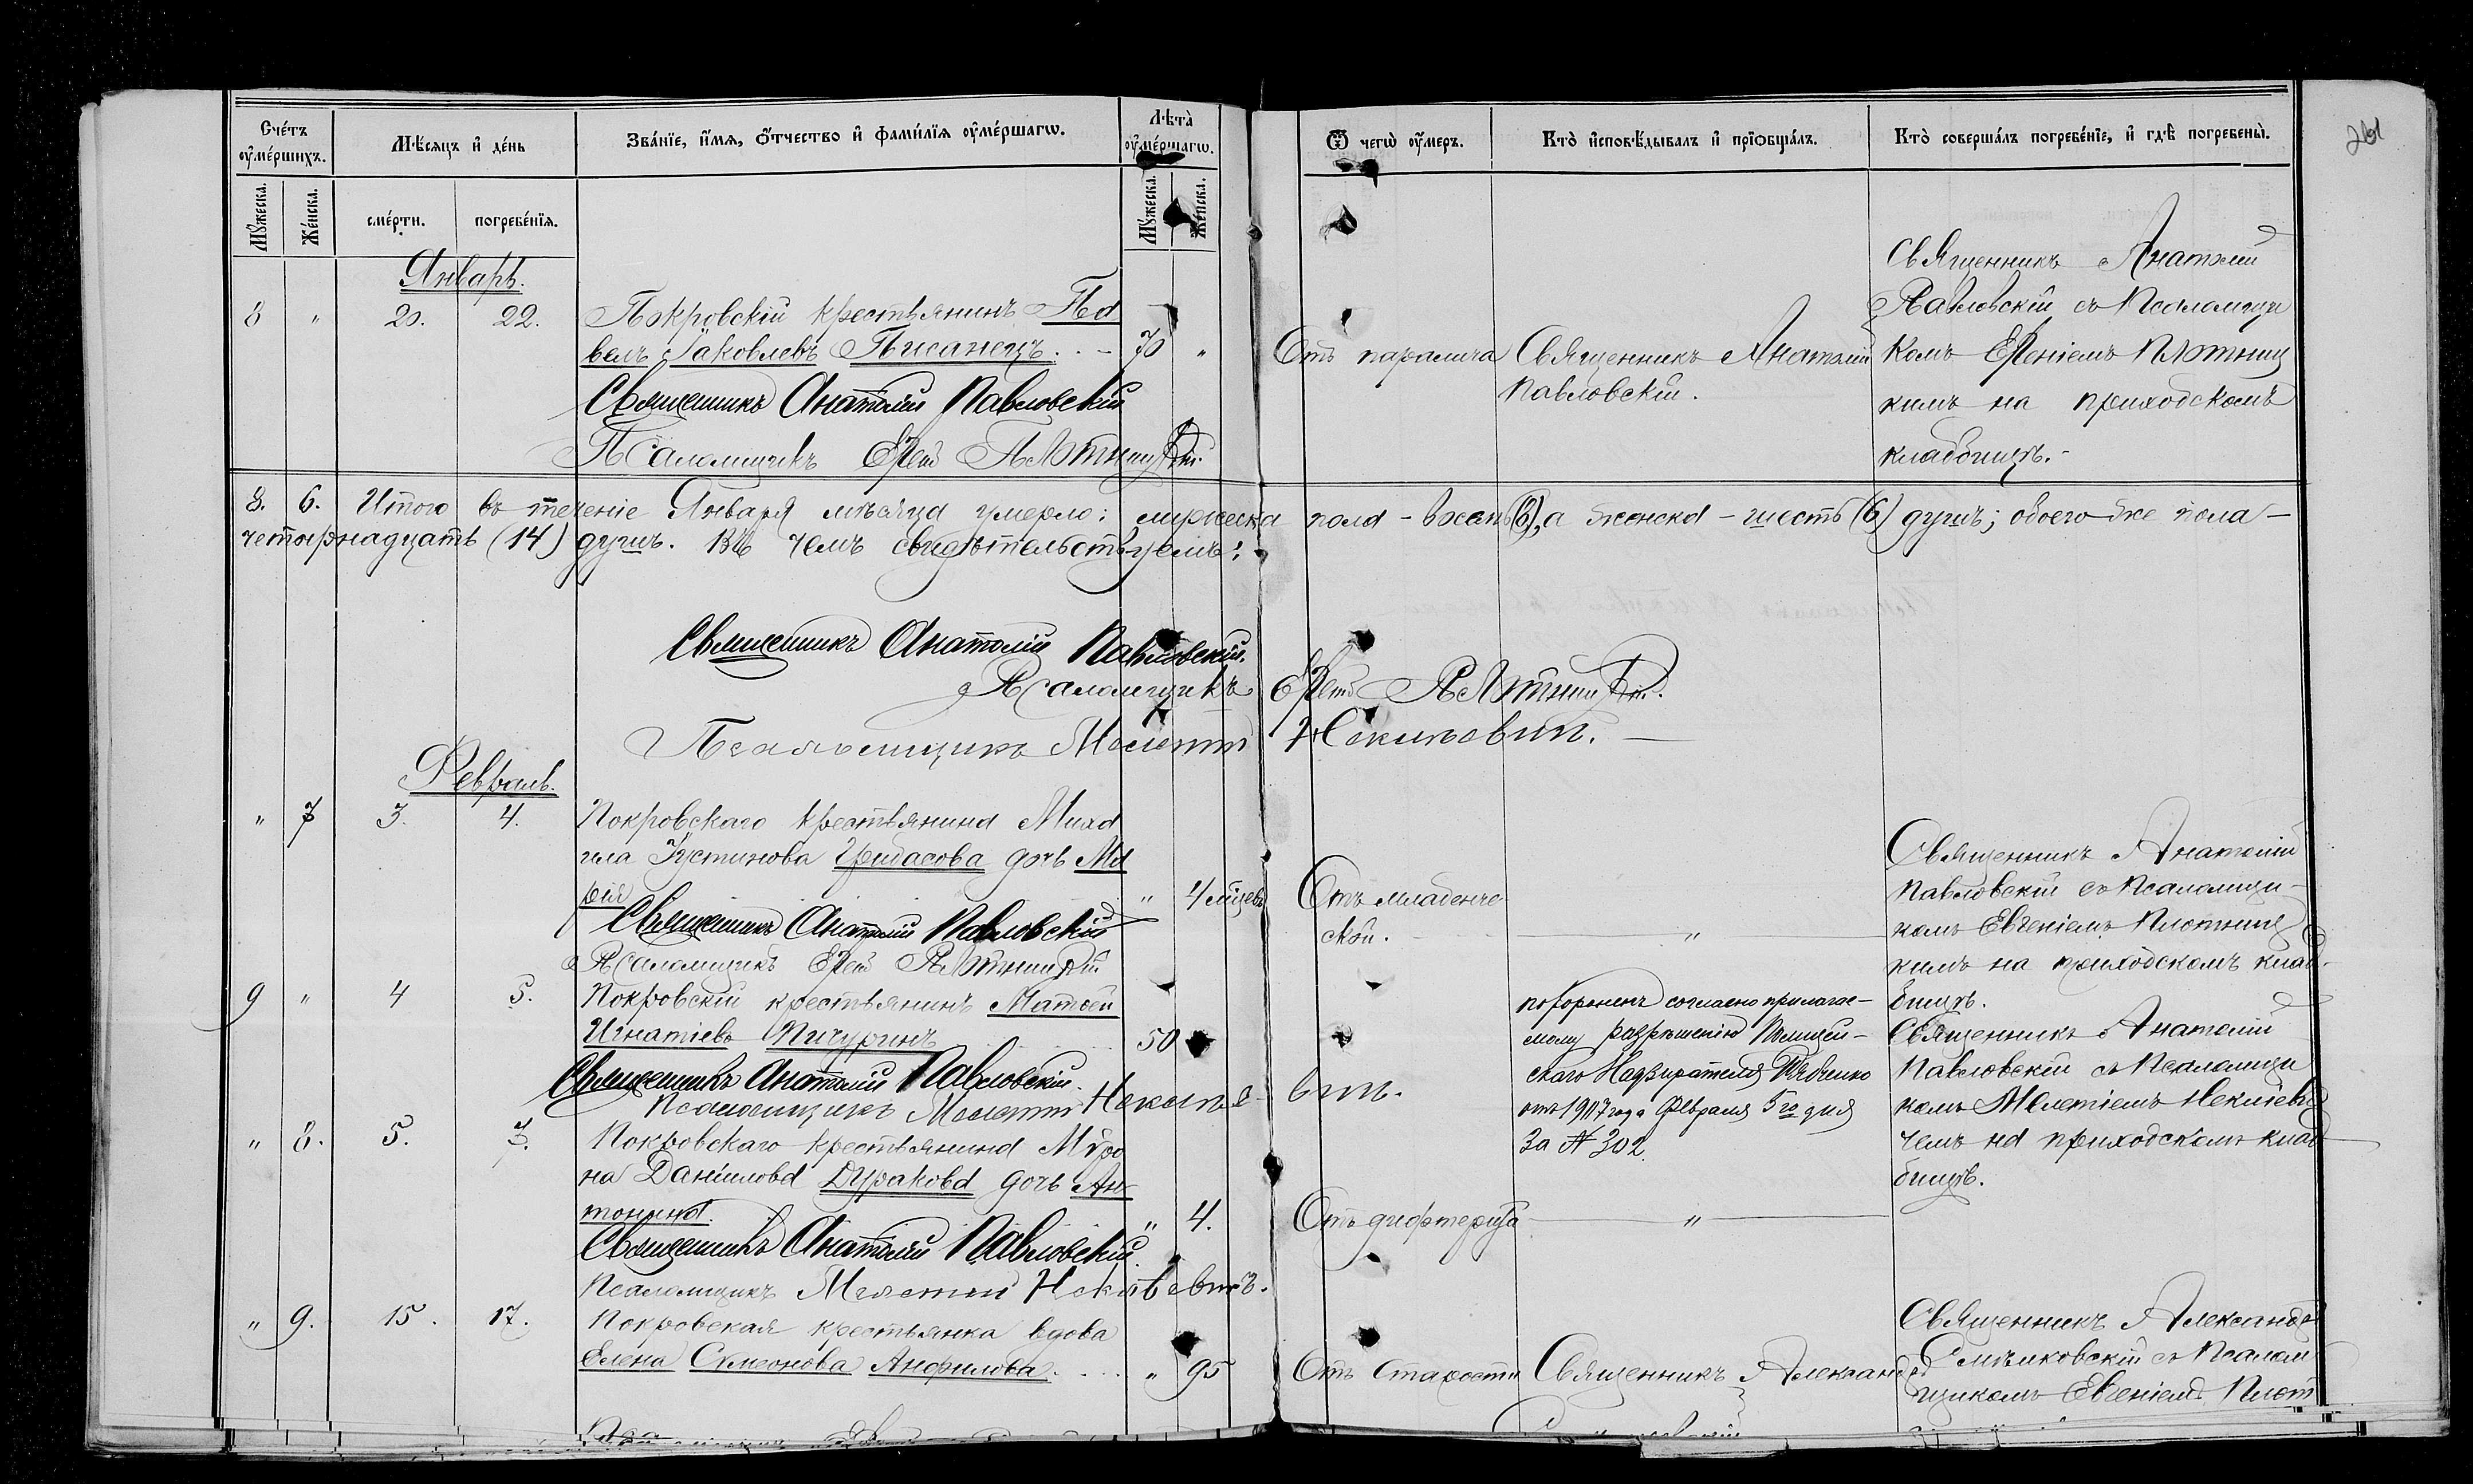 Счетъ оумершихъ.
Мѣсяцъ и день
Званіе, имя, отчество и фамилія оумершагω.
Лѣта оумершагω.
Ѿ чегω оумеръ.
Кто исповѣдывалъ и пріωбщалъ.
Кто совершалъ погребеніе, и гдѣ погребены.
261
Мужеска.
Женска.
смерти.
погребенія.
Мужеска.
Женска.
Январь.
8 " 20. 22.
Покровскій крестьянинъ Па
велъ Іаковлевъ Писанецъ. 70 "
Священникъ Анатолій Павловскій
Псаломщикъ
Отъ паралича
Священникъ Анатолій
Павловскій.
Священникъ Анатолій
Павловскій съ Псаломщи
комъ Евгеніемъ Плотниц
кимъ на приходскомъ
кладбищѣ.
8. 6. Итого въ теченіе Января мѣсяца умерло: мужеска пола - восемь (8), а женска - шесть (6) душъ; обоего же пола -
четырнадцать (14) душъ. Въ чемъ свидѣтельствуемъ:
Священникъ Анатолій Павловскій.
Псаломщикъ
Псаломщикъ Мелетій
Февраль.
" 7 3. 4.
Покровскаго крестьянина Миха
ила Іустинова Грибасова дочь Ма
рія " 4 мѣцевъ
Священникъ Анатолій Павловскій
Псаломщикъ
Отъ младенче
ской.
"
Священникъ Анатолій
Павловскій съ Псаломщи-
комъ Евгеніемъ Плотниц
кимъ на приходскомъ клад-
бищѣ.
9 " 4 5.
Покровскій крестьянинъ Матѳей
Игнатіевъ Пичуринъ 50
Священникъ Анатолій Павловскій.
Псаломщикъ Мелетій
похороненъ согласно прилагае-
мому разрѣшенію Полицей-
скаго Надзирателя
отъ 1917 года Февраля 5го дня
За № 302.
Священникъ Анатолій
Павловскій съ Псаломщи
комъ Мелетіемъ
чемъ на приходскомъ клад-
бищѣ.
" 8. 5. 7.
Покровскаго крестьянина Мѵро
на Даніилова Дуракова дочь Ан-
тонина. " 4.
Священникъ Анатолій Павловскій.
Псаломщикъ Мелетій
Отъ дифтерита
"
" 9. 15. 17.
Покровская крестьянка вдова
Елена Симеонова Анфилова. " 95
Отъ старости
Священникъ Александръ
Священникъ Александръ
съ Псалом
щикомъ Евгеніемъ Плот